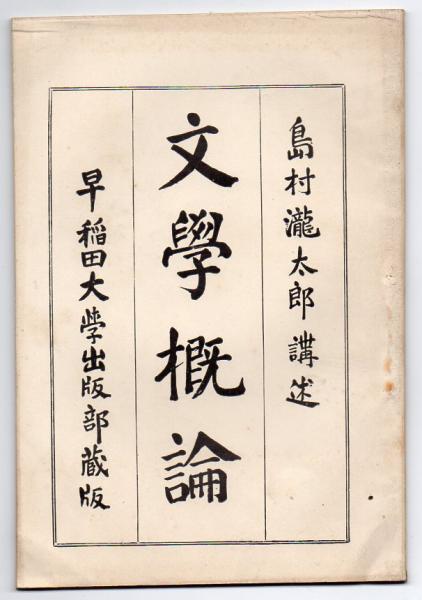 島村瀧太郎講述
文學概論
早稲田大学出版部蔵版